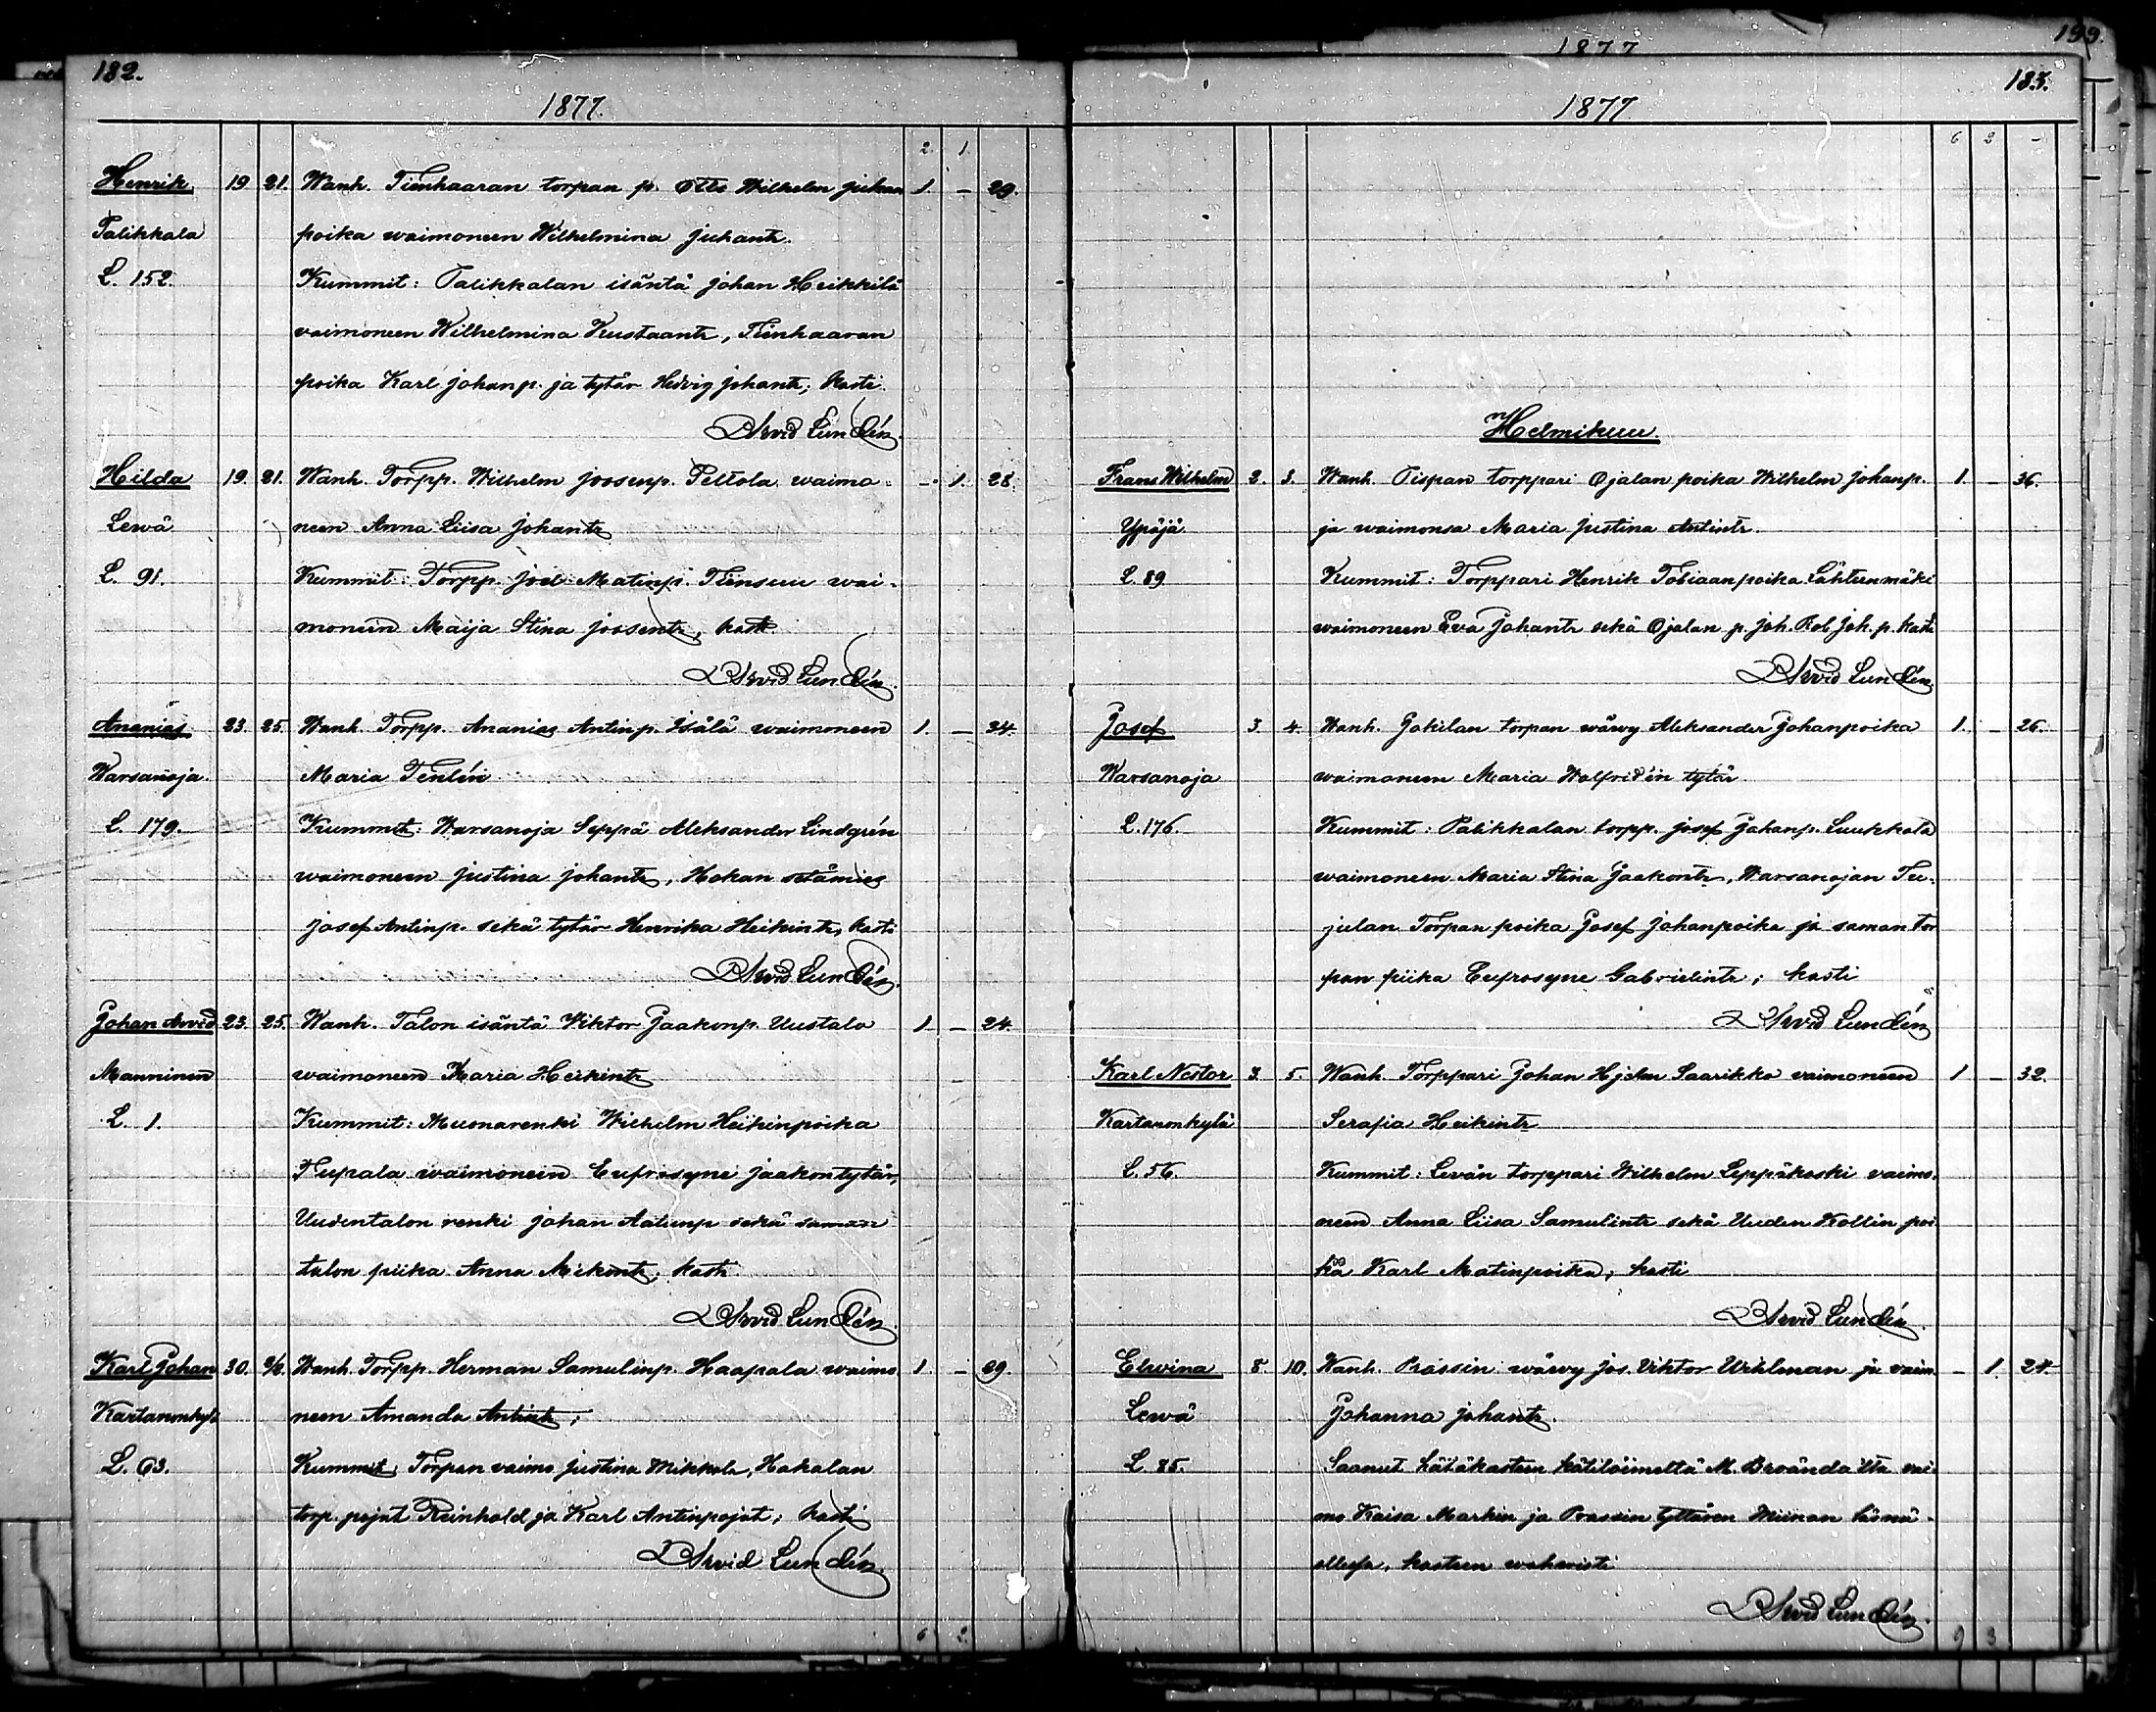 182.
1877.
2. 1.
Henrik 19 21. Wanh. Tienhaaran torpan p. Otto Wilhelm juhan 1. – 29.
Palikkala poika waimoneen Wilhelmina Juhantr.
L. 152. Kummit: Palikkalan isäntä Johan Heikkilä
vaimoneen Wilhelmina Kustaantr, Tienhaaran
poika Karl Johanp. ja tytär Hedvig Johantr; kasti
Arvid Lundén.
Hilda 19. 21. Wanh. Torpp. Wilhelm Joosenp. Peltola waimo- – 1. 28
Lewä neen Anna Liisa Johantr
L. 91. Kummit: Torpp. Joel Matinp. Tiensuu wai-
moneen Maija Stina Joosentr, kast.
Arvid Lundén.
Ananias 23. 25. Wanh. Torpp. Ananias Antinp. Isälä waimoneen 1. – 34.
Warsanoja. Maria Tenlén
L. 179. Kummit: Warsanoja Seppä Aleksander Lindgrén
waimoneen Justina Johantr, Hokan setämies
Josef Antinp. sekä tytär Henrika Heikintr, kasti
Arvid Lundén.
Johan Arvid 23. 25. Wanh. Talon isäntä Viktor Jaakonp. Uustalo 1 – 24.
Manninen waimoneen Maria Heikintr
L. 1. Kummit: Muonarenki Wilhelm Heikinpoika
Tupala waimoneen Eufrosyne Jaakontytär,
Uudentalon renki Johan Aatunp sekä saman
talon piika Anna Mikontr, kasti
Arvid Lundén.
Karl Johan 30. 2/2. Wanh. Torpp. Herman Samulinp. Haapala waimo 1 – 29.
Kartanonkylä neen Amanda Antintr;
L. 63. Kummit: Torpan vaimo Justina Mikkola, Hakalan
torp. pojat Reinhold ja Karl Antinpojat; kasti
Arvid Lundén.
6 2.
1877
199.
183.
1877
6 2 –
Helmikuu.
Frans Wilhelm 2. 3. Wanh. Pispan torppari Ojalan poika Wilhelm Johanp. 1. – 36.
Ypäjä ja waimonsa Maria Justina Antintr.
L. 89 Kummit: Torppari Henrik Tobiaanpoika Lähteenmäki
waimoneen Eva Johantr sekä Ojalan p. Joh. Rob. Joh. p. kasti
Arvid Lundén
Josef 3. 4. Wanh. Jokilan torpan wäwy Aleksander Johanpoika 1. – 26.
Warsanoja waimoneen Maria Wolfridin tytär
L. 176. Kummit: Palikkalan torpp. Josef Johanp. Luukkala
waimoneen Maria Stina Jaakontr, Warsanojan Tu-
julan Torpan poika Josef Johanpoika ja saman tor
pan piika Eufrosyne Gabrielintr; kasti
Arvid Lundén
Karl Nestor 3. 5. Wanh. Torppari Johan Hjelm Saarikko vaimoneen 1 – 32.
Kartanonkylä Serafia Heikintr
L. 56. Kummit: Levän torppari Wilhelm Leppäkoski vaimo-
neen Anna Liisa Samulintr sekä Uuden Kollin poi
ka Karl Matinpoika; kasti
Arvid Lundén
Elwina 8. 10. Wanh. Prässin wäwy Jos. Viktor Wihlman ja vaim. – 1. 24.
Lewä Johanna Johantr.
L. 85. Saanut hätäkasteen kätilöimeltä M. Broanda'lta vai
mo Kaisa Markin ja Prässin tyttären Miinan läsnä-
ollessa, kasteen wahwisti
Arvid Lundén.
9 3